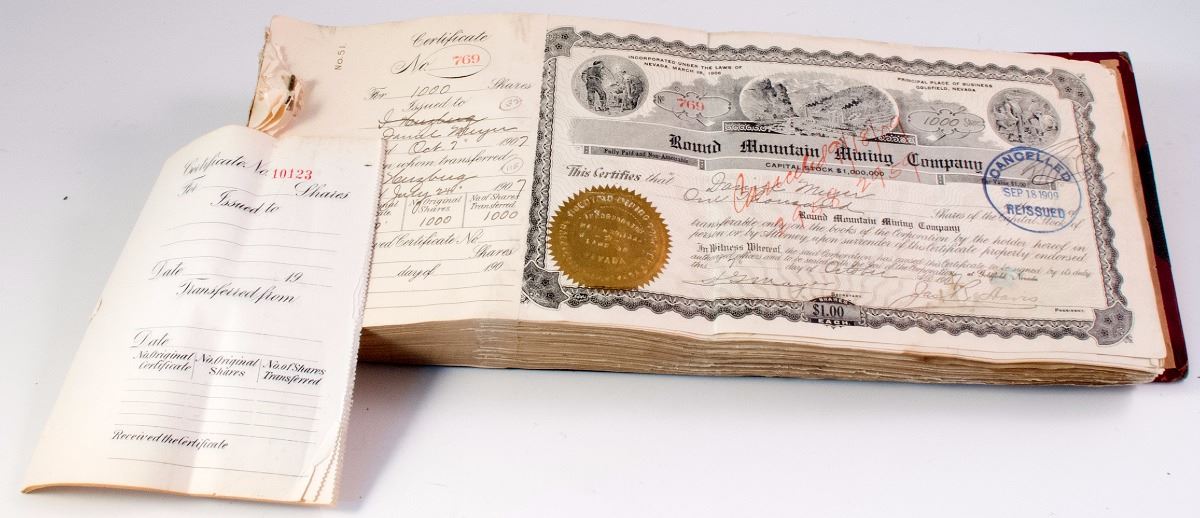 No. 51.
Certificate
No 769
For 1000 Shares
Issued to
Daniel Meyer
Oct. 7 1907
whom transferred
July 24 1907
No. Original Shares
No. of Shares Transferred
1000 1000
Certificate No.
Shares
day of 190
INCORPORATED UNDER THE LAWS OF
NEVADA, MARCH 1906
PRINCIPAL PLACE OF BUSINESS
GOLDFIELD, NEVADA
No 769
1000
Round Mountain Mining Company
Fully Paid and Non-Assessable
CAPITAL STOCK $1,000,000
This Certifies that Daniel Meyer
One Thousand
Shares of the Capital Stock of
Round Mountain Mining Company
transferable only on the books of the Corporation by the holder hereof in
person or by Attorney, upon surrender of this Certificate properly endorsed.
In Witness Whereof, the said Corporation has caused this Certificate to be signed by its duly
authorized officers and to be sealed with the Seal of the Corporation
this day of
SECRETARY
PRESIDENT
SHARES
$1.00
EACH
CANCELLED
SEP 18 1909
REISSUED
ROUND MOUNTAIN MINING COMPANY
NEVADA
Cancelled
Certificate No. 10123
For Shares
Issued to
Date 19
Transferred from
Date
No. Original Certificate
No. Original Shares
No. of Shares Transferred
Received the Certificate